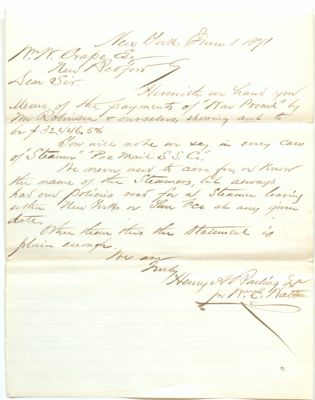 New York June 1 1871
Wm W. Crapo Esq
New Bedford
Dear Sir.
Herewith we hand you
Memo of the payments of "War Prems" by
Mr Robinson & ourselves, showing amt to
be $32,446.58
You will note we say in every case
of Steamer "Pac Mail S.S. Co.
We never used to care for, or know
the name of the Steamers, but always
had our Policies read for a Steamer leaving
either New York or San Fco at any given
date.
Other than this the statement is
plain enough.
We are
Truly
Henry A
pr W. E.